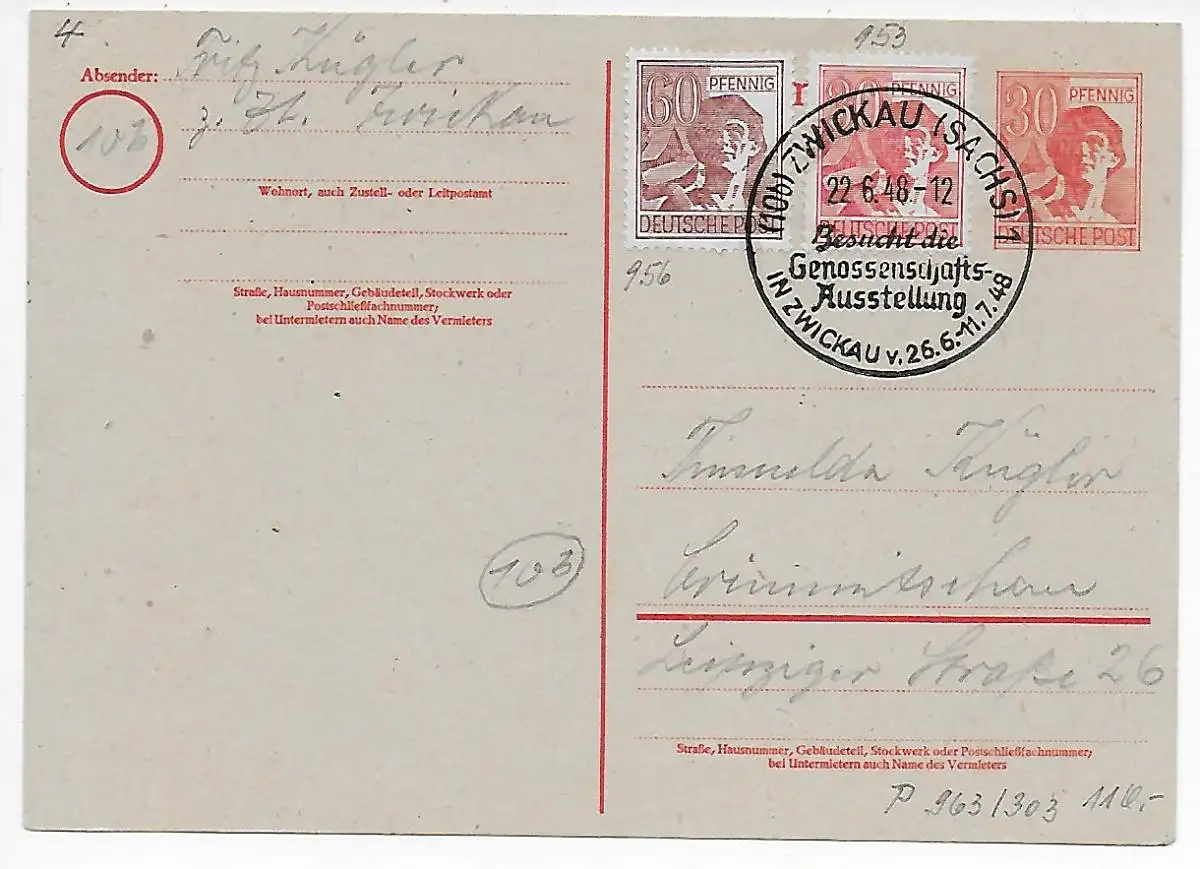 4
Absender: Fritz Kügler
10b z. Zt. Zwickau
Wohnort, auch Zustell- oder Leitpostamt
Straße, Hausnummer, Gebäudeteil, Stockwerk oder
Postschließfachnummer;
bei Untermietern auch Name des Vermieters
953
60 PFENNIG
DEUTSCHE POST
PFENNIG
DEUTSCHE POST
30 PFENNIG
DEUTSCHE POST
956
(10b) ZWICKAU (SACHS) 1
22.6.48.-12
Besucht die
Genossenschafts-
Ausstellung
IN ZWICKAU v. 26.6.-11.7.48
Kügler
Crimmitschau
103
Leipziger Straße 26
Straße, Hausnummer, Gebäudeteil, Stockwerk oder Postschließfachnummer;
bei Untermietern auch Name des Vermieters
P 963/303 110,-